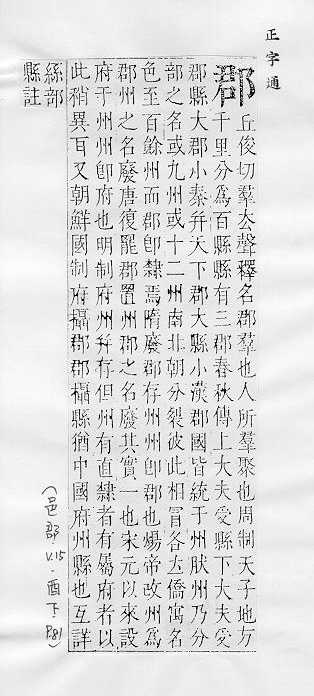 正字通
郡 丘俊切羣去聲釋名郡羣也人所羣聚也周制天子地方
千里分爲百縣縣有三郡春秋傳上大夫受縣下大夫受
郡縣大郡小秦幷天下郡大縣小漢郡國皆統于州肰州乃分
部之名或九州或十二州南北朝分裂彼此相冒各立僑寓名
色至百餘州而郡卽隸焉隋廢郡存州州卽郡也煬帝改州爲
郡州之名廢唐復罷郡置州郡之名廢其實一也宋元以來設
府于州州卽府也明制府州幷存但州有直隸者有屬府者以
此稍異耳又朝鮮國制府攝郡郡攝縣猶中國府州縣也互詳
糸部
縣註
(邑郡 V.15-酉下-P.81)